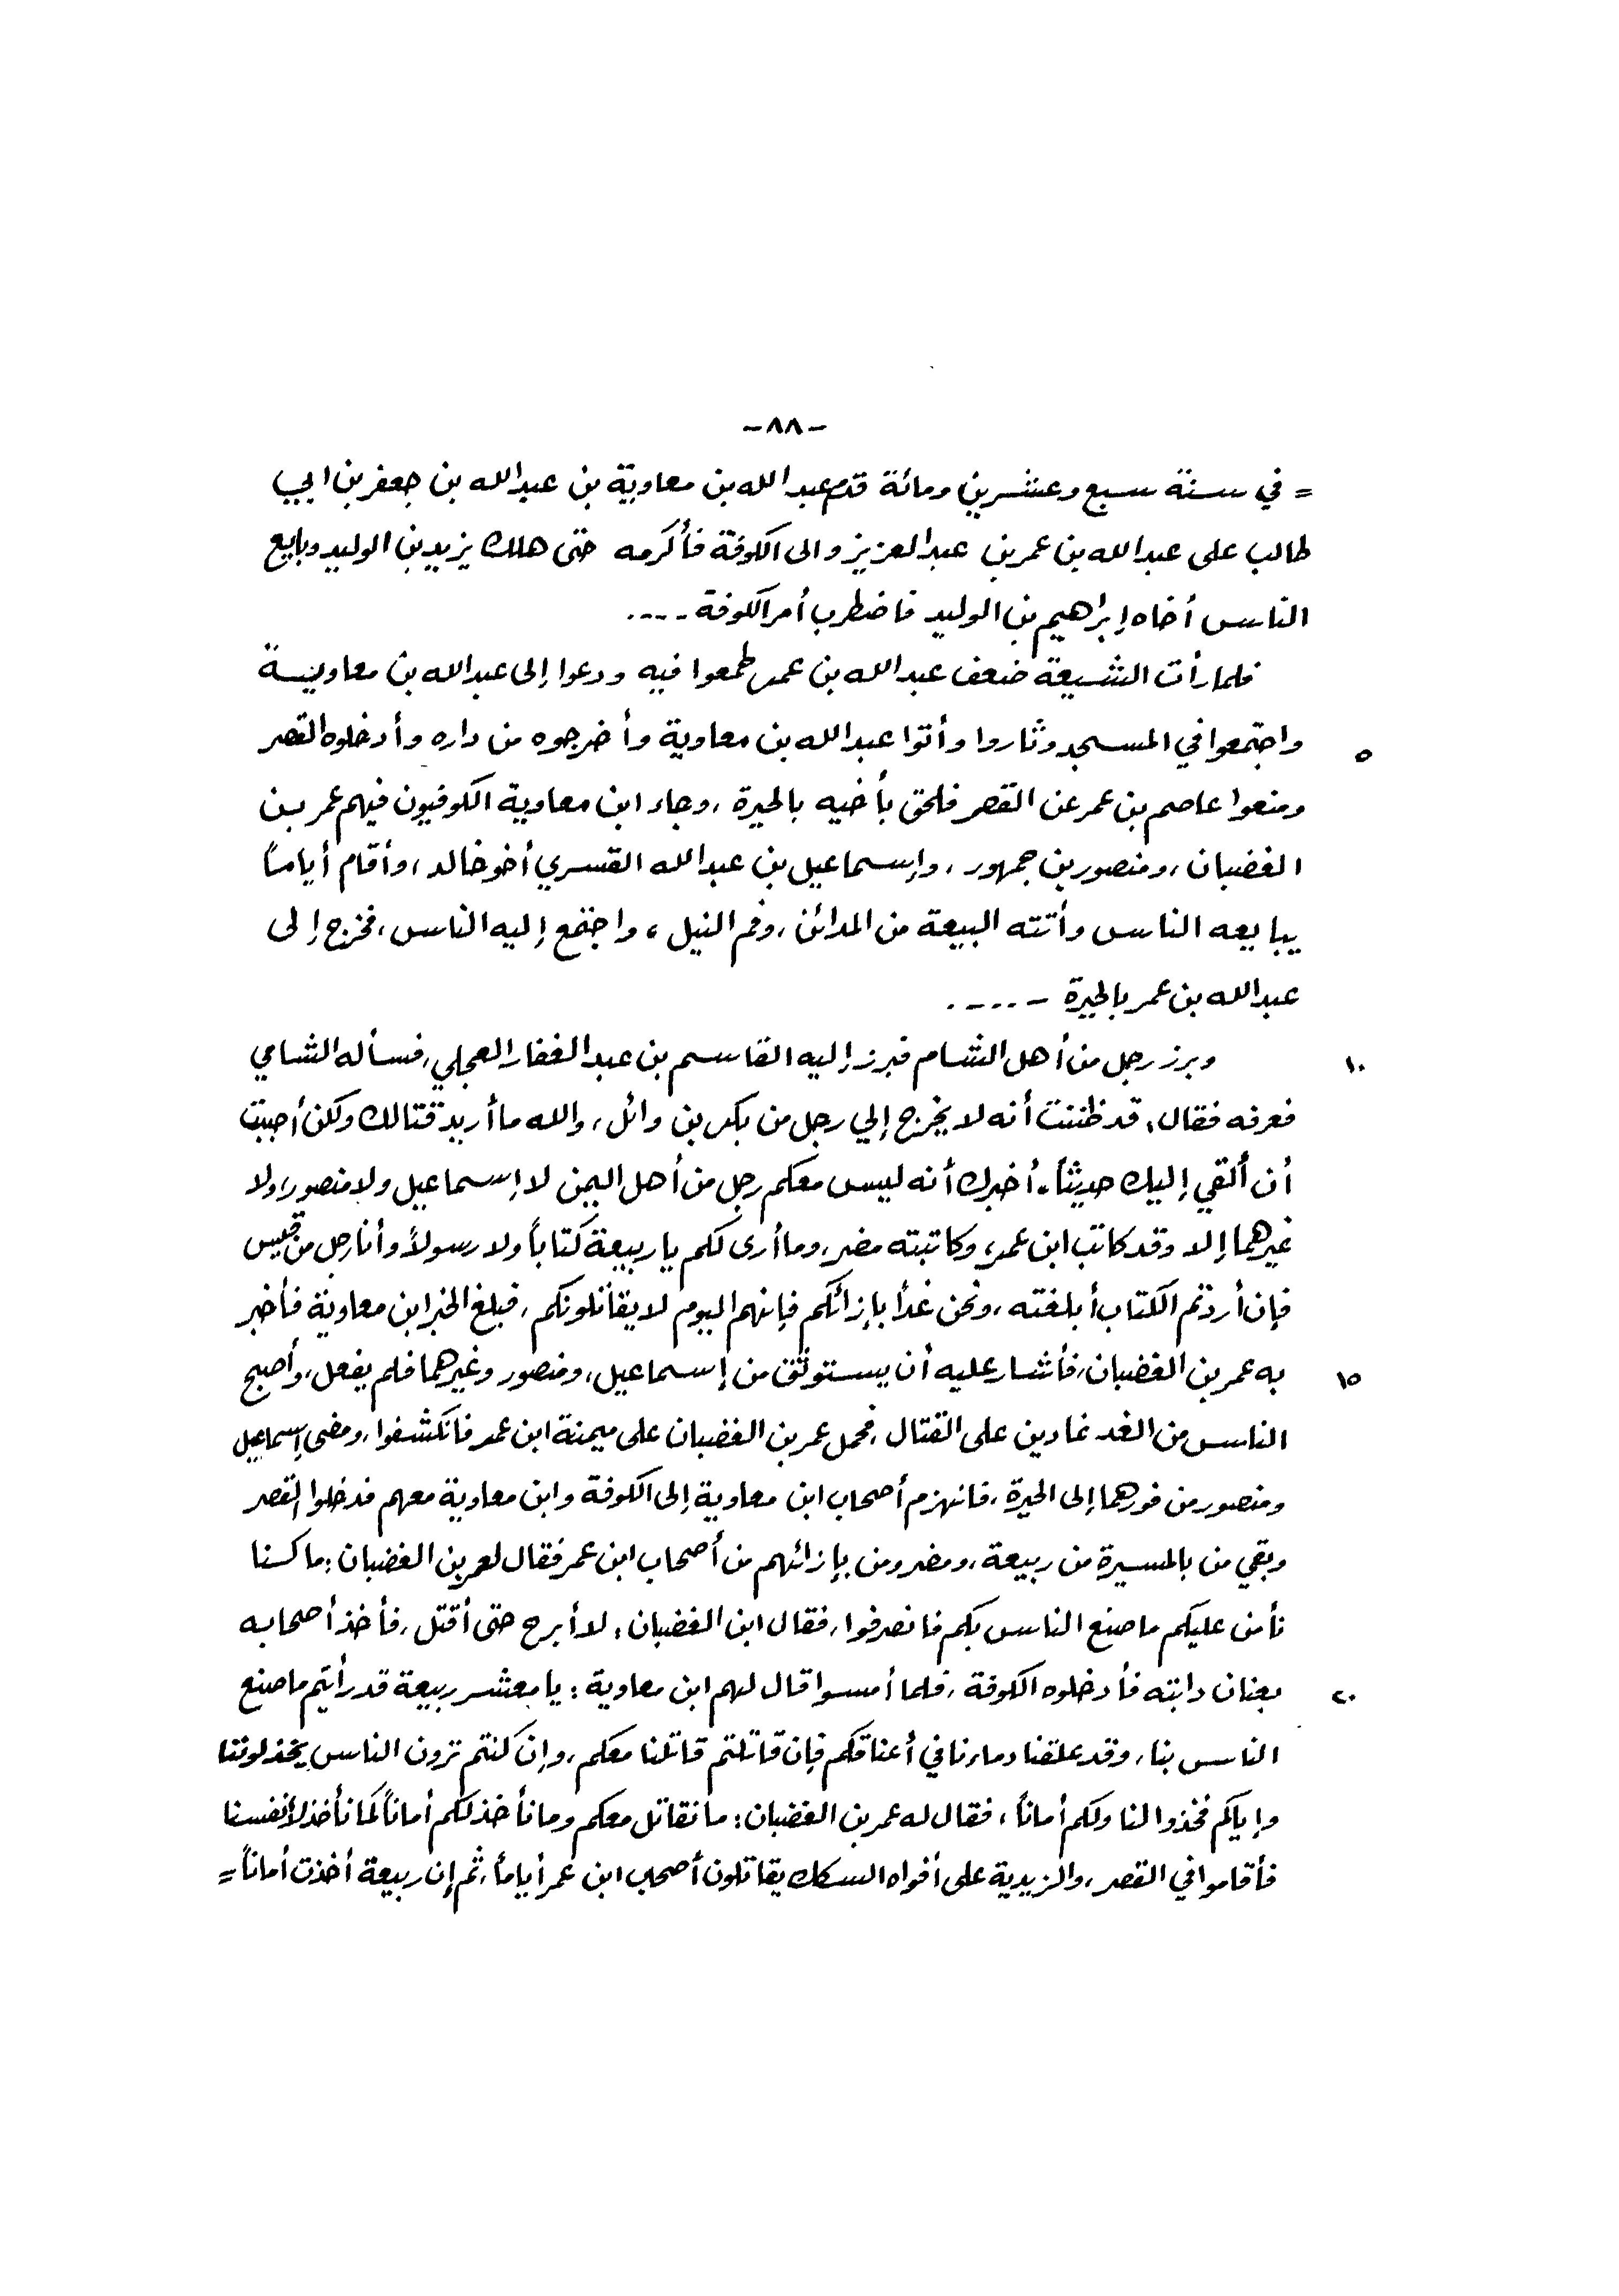 -٨٨-
= في سنة سبع وعشرين ومائة قدم عبد الله بن معاوية بن عبد الله بن جعفر بن ابي
طالب على عبد الله بن عمر بن عبد العزيز والى الكوفة فأكرمه حتى هلك يزيد بن الوليد وبايع
الناس أخاه إبراهيم بن الوليد فاضطرب أمر الكوفة ....
فلما رأت الشيعة ضعف عبد الله بن عمر طمعوا فيه ودعوا إلى عبد الله بن معاوية
واجتمعوا في المسجد وثاروا وأتوا عبد الله بن معاوية وأخرجوه من داره وأدخلوه القصر ٥
ومنعوا عاصم بن عمر عن القصر فلحق بأخيه بالحيرة، وجاء ابن معاوية الكوفيون فيهم عمر بن
الغضبان، ومنصور بن جمهور، وإسماعيل بن عبد الله القسري أخو خالد، وأقام أياماً
يبايعه الناس وأتته البيعة من المدائن، وفم النيل، واجتمع إليه الناس، فخرج إلى
عبد الله بن عمر بالحيرة .....
وبرز رجل من أهل الشام فبرز إليه القاسم بن عبد الغفار العجلي، فسأله الشامي ١٠
فعرفه فقال: قد ظننت أنه لا يخرج إلي رجل من بكر بن وائل، والله ما أريد قتالك ولكن أحببت
أن ألقي إليك حديثاً. أخبرك أنه ليس معكم رجل من أهل اليمن لا إسماعيل ولا منصور، ولا
غيرهما إلا وقد كاتب ابن عمر، وكاتبته مضر، وما أرى لكم يا ربيعة كتاباً ولا رسولاً وأنا رجل من قيس
فإن أردتم الكتاب أبلغته، ونحن غداً بإزائكم فإنهم اليوم لا يقاتلونكم، فبلغ الخبر ابن معاوية فأخبر
به عمر بن الغضبان، فأشار عليه أن يستوثق من إسماعيل، ومنصور وغيرهما فلم يفعل، وأصبح ١٥
الناس من الغد غادين على القتال، فحمل عمر بن الغضبان على ميمنة ابن عمر فانكشفوا، ومضى إسماعيل
ومنصور من فورهما إلى الحيرة، فانهزم أصحاب ابن معاوية إلى الكوفة وابن معاوية معهم فدخلوا القصر
وبقي من بالمسيرة من ربيعة، ومضر ومن بإزائهم من أصحاب ابن عمر فقال لعمر بن الغضبان: ما كسنا
نأمن عليكم ما صنع الناس بكم فانصرفوا، فقال ابن الغضبان: لا أبرح حتى أقتل، فأخذ أصحابه
بعنان دابته فأدخلوه الكوفة، فلما أمسوا قال لهم ابن معاوية: يا معشر ربيعة قد رأيتم ما صنع ٢٠
الناس بنا، وقد علقنا دماءنا في أعناقكم فإن قاتلتم قاتلنا معكم، وإن كنتم ترون الناس يخذلوننا
وإياكم فخذوا لنا ولكم أماناً، فقال له عمر بن الغضبان: ما نقاتل معكم وما نأخذ لكم أماناً كما نأخذ لأنفسنا
فأقاموا في القصر، والزيدية على أفواه السكك يقاتلون أصحاب ابن عمر أياماً، ثم إن ربيعة أخذت أماناً =